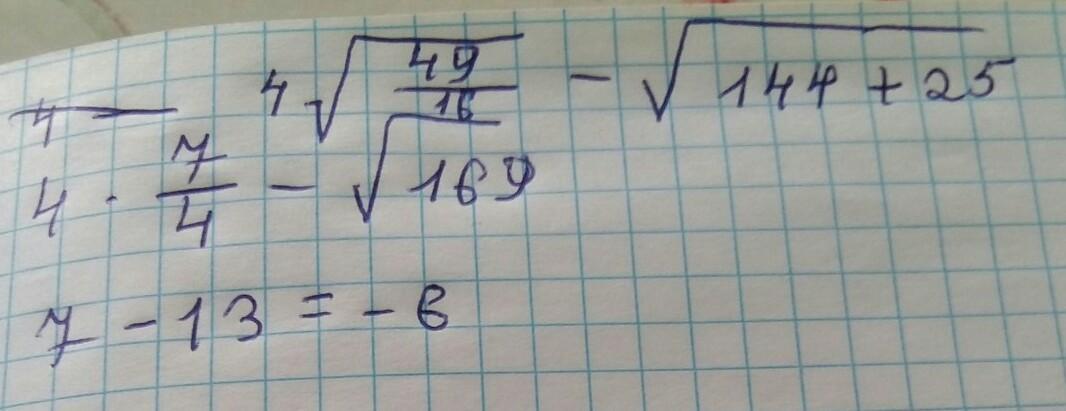 4√(49/16) − √(144 + 25)
4 · 7/4 − √169
7 − 13 = − 6